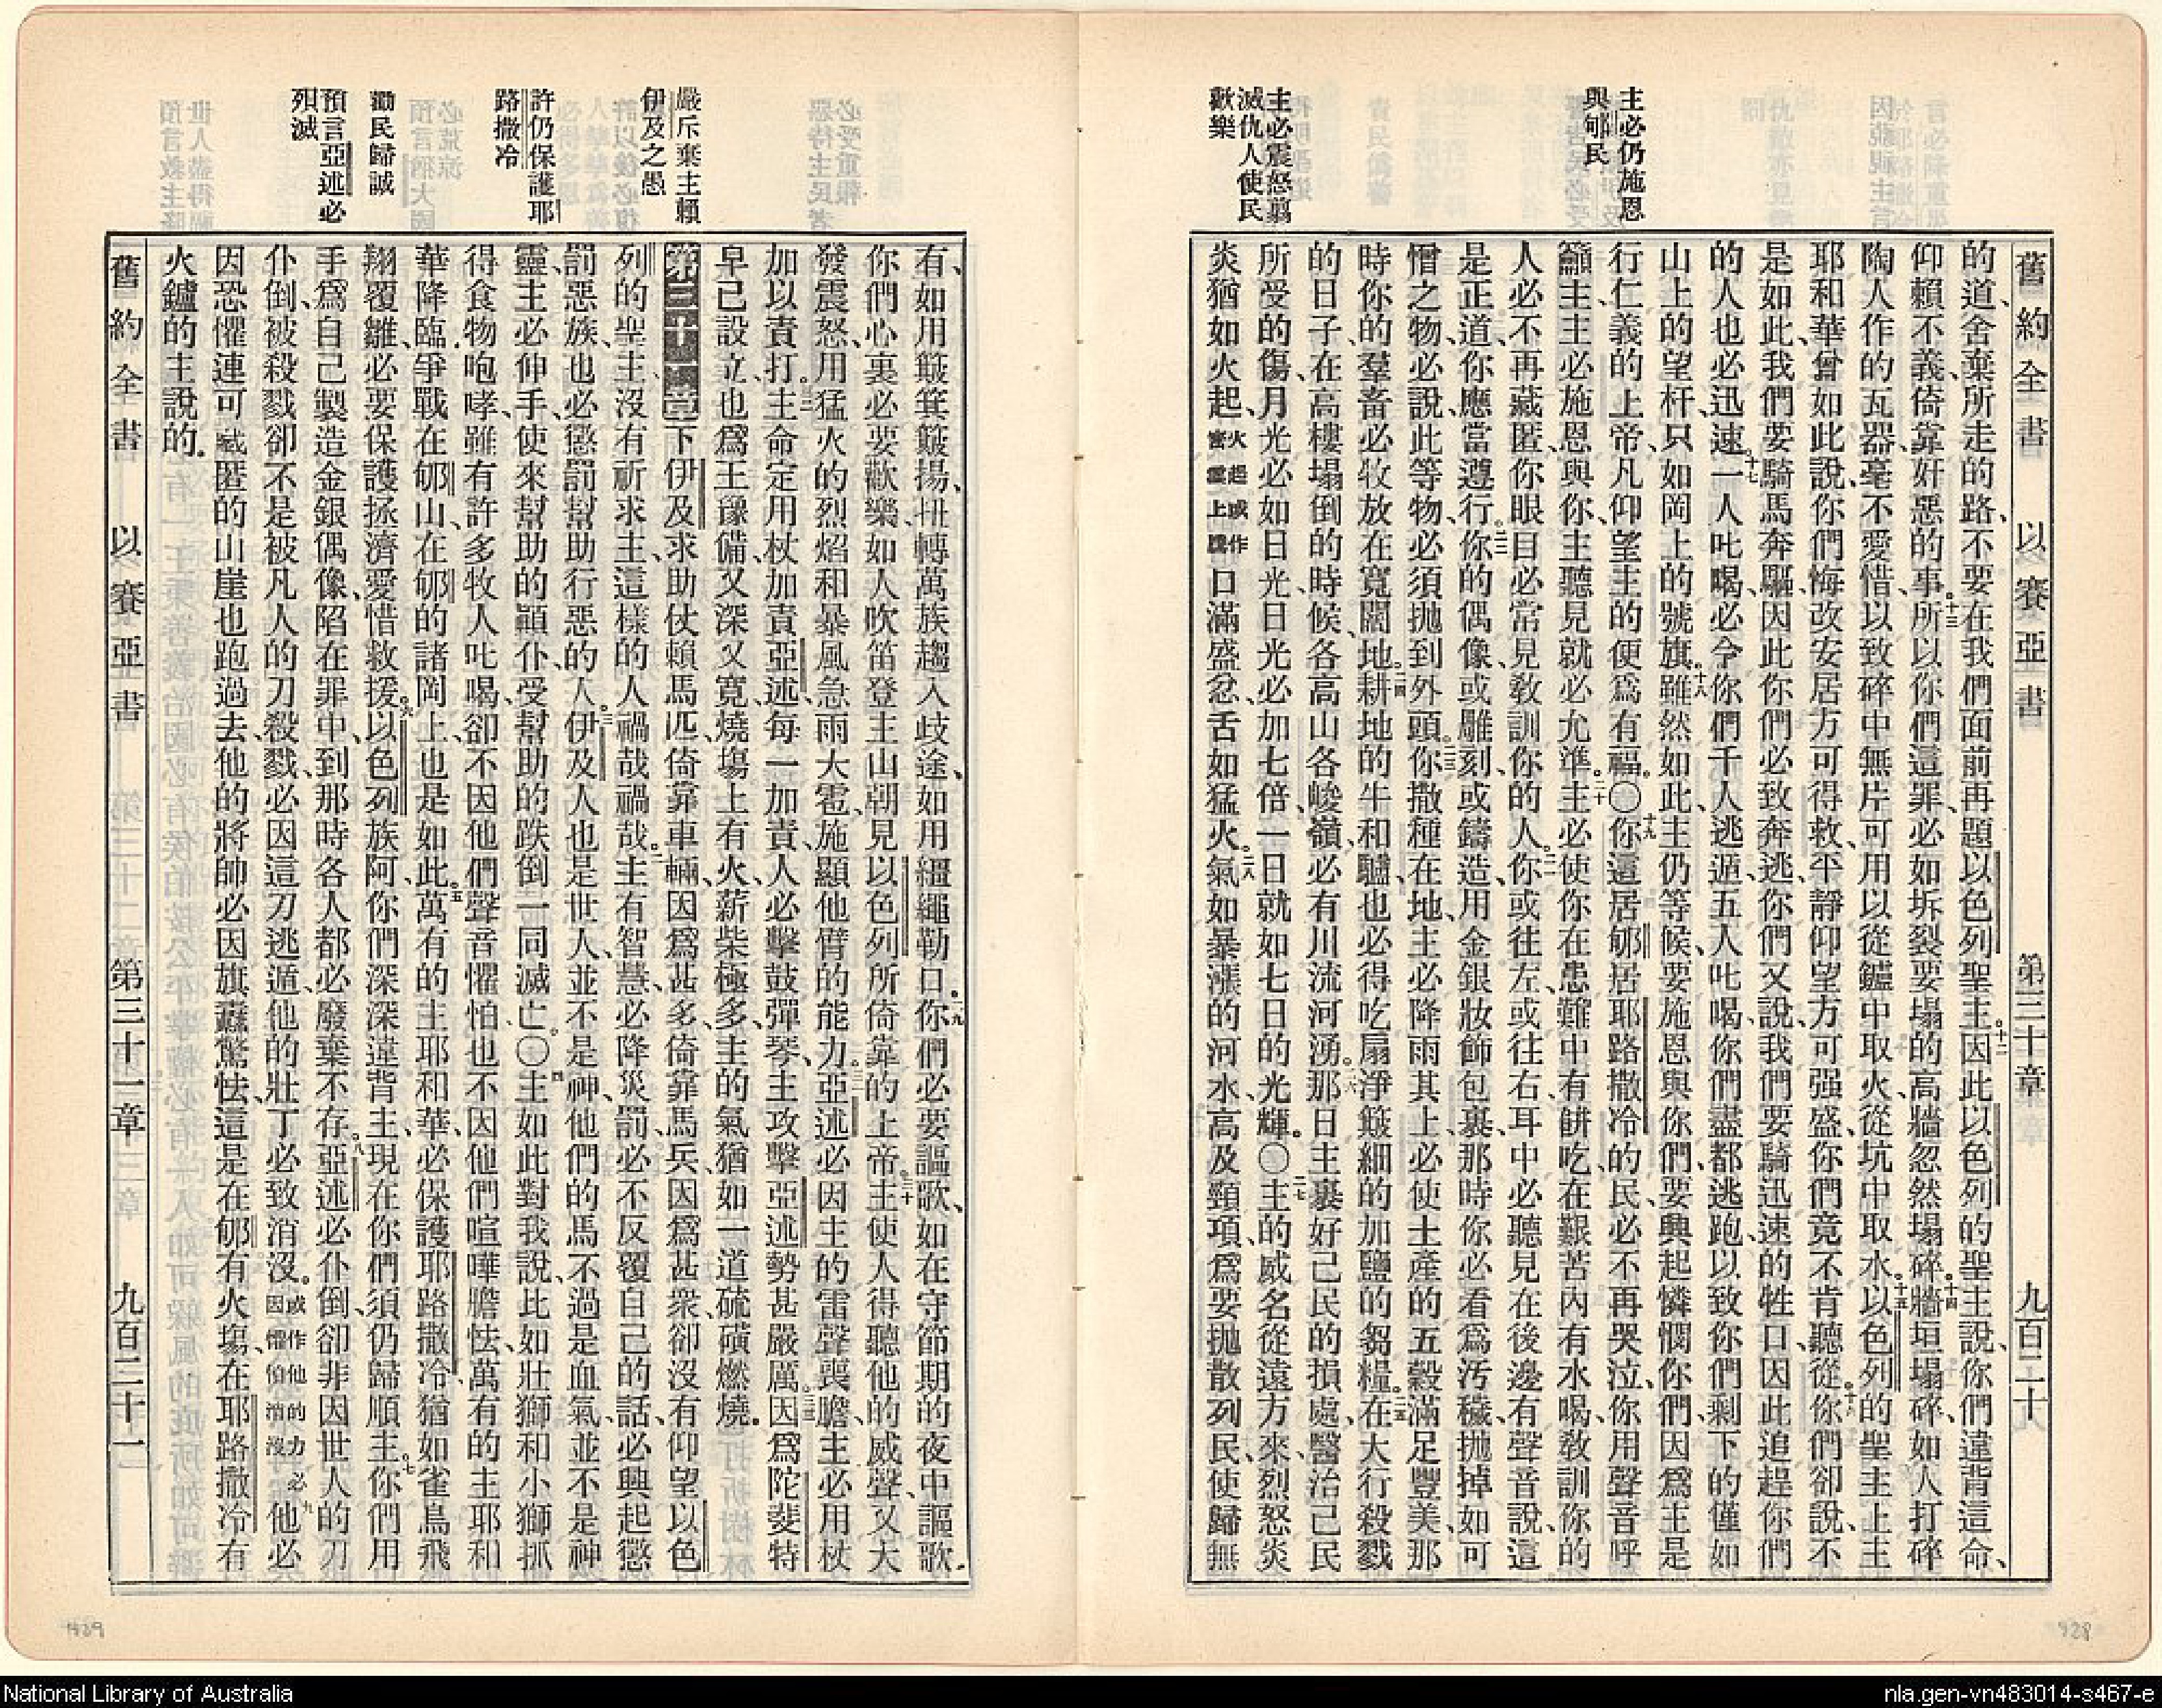 舊約全書 以賽亞書 第三十章 九百二十
主必仍施恩
與郇民
主必震怒翦
滅仇人使民
歡樂
的道、舍棄所走的路、不要在我們面前再題以色列聖主。十二因此以色列的聖主說、你們違背這命、
仰賴不義、倚靠奸惡的事。十三所以你們這罪、必如坼裂要塌的高牆、忽然塌碎。十四牆垣塌碎、如人打碎
陶人作的瓦器、毫不愛惜、以致碎中無片可用以從鑪中取火、從坑中取水。十五以色列的聖主上主
耶和華曾如此說、你們悔改安居方可得救、平靜仰望方可强盛、你們竟不肯聽從。十六你們卻說、不
是如此、我們要騎馬奔驅、因此你們必致奔逃、你們又說、我們要騎迅速的牲口、因此追趕你們
的人也必迅速。十七一人叱喝、必令你們千人逃遁、五人叱喝、你們盡都逃跑、以致你們剩下的僅如
山上的望杆、只如岡上的號旗。十八雖然如此、主仍等候要施恩與你們、要興起憐憫你們、因爲主是
行仁義的上帝、凡仰望主的便爲有福。〇十九你這居郇居耶路撒冷的民、必不再哭泣、你用聲音呼
籲主、主必施恩與你、主聽見就必允準。二十主必使你在患難中有餅吃、在艱苦內有水喝、敎訓你的
人必不再藏匿、你眼目必常見敎訓你的人。二一你或往左、或往右、耳中必聽見在後邊有聲音說、這
是正道、你應當遵行。二二你的偶像、或雕刻、或鑄造、用金銀妝飾包裹、那時你必看爲汚穢、拋掉如可
憎之物、必說、此等物、必須拋到外頭。二三你撒種在地、主必降雨其上、必使土產的五穀滿足豐美、那
時你的羣畜必牧放在寬闊地。二四耕地的牛和驢、也必得吃扇淨簸細的加鹽的芻糧。二五在大行殺戮
的日子、在高樓塌倒的時候、各高山各峻嶺、必有川流河湧。二六那日主裹好己民的損處、醫治己民
所受的傷、月光必如日光、日光必加七倍、一日就如七日的光輝。〇二七主的威名從遠方來、烈怒炎
炎、猶如火起、火起或作密雲上騰口滿盛忿、舌如猛火。二八氣如暴漲的河水、高及頸項、爲要拋散列民、使歸無
有、如用簸箕簸揚、扭轉萬族趨入歧途、如用繮繩勒口。二九你們必要謳歌、如在守節期的夜中謳歌、
你們心裏必要歡樂、如人吹笛登主山朝見以色列所倚靠的上帝。三十主使人得聽他的威聲、又大
發震怒、用猛火的烈焰和暴風急雨大雹施顯他臂的能力。三一亞述必因主的雷聲喪膽、主必用杖
加以責打。三二主命定用杖加責亞述、每一加責、人必擊鼓彈琴、主攻擊亞述勢甚嚴厲。三三因爲陀斐特
早已設立、也爲王豫備、又深又寬、燒塲上有火、薪柴極多、主的氣猶如一道硫磺燃燒。
嚴斥棄主賴
伊及之愚
許仍保護耶
路撒冷
勸民歸誠
預言亞述必
殞滅
第三十一章 下伊及求助、仗賴馬匹、倚靠車輛因爲甚多、倚靠馬兵因爲甚衆、卻沒有仰望以色
列的聖主、沒有祈求主、這樣的人禍哉禍哉。二主有智慧、必降災罰、必不反覆自己的話、必興起懲
罰惡族、也必懲罰幫助行惡的人。三伊及人也是世人、並不是神、他們的馬不過是血氣、並不是神
靈、主必伸手、使來幫助的顚仆、受幫助的跌倒、一同滅亡。〇四主如此對我說、比如壯獅和小獅抓
得食物咆哮、雖有許多牧人叱喝、卻不因他們聲音懼怕、也不因他們喧嘩膽怯、萬有的主耶和
華降臨、爭戰在郇山、在郇的諸岡上、也是如此。五萬有的主耶和華必保護耶路撒冷、猶如雀鳥飛
翔覆雛、必要保護拯濟、愛惜救援。六以色列族阿、你們深深違背主、現在你們須仍歸順主。七你們用
手爲自己製造金銀偶像、陷在罪中、到那時各人都必廢棄不存。八亞述必仆倒、卻非因世人的刀
仆倒、被殺戮卻不是被凡人的刀殺戮、必因這刀逃遁、他的壯丁必致消沒。或作他的力必因懼怕消沒九他必
因恐懼連可藏匿的山崖也跑過去、他的將帥必因旗纛驚怯、這是在郇有火塲、在耶路撒冷有
火鑪的主說的。
舊約全書 以賽亞書 第三十一章 九百二十一
928
929
National Library of Australia
nla.gen-vn483014-s467-e